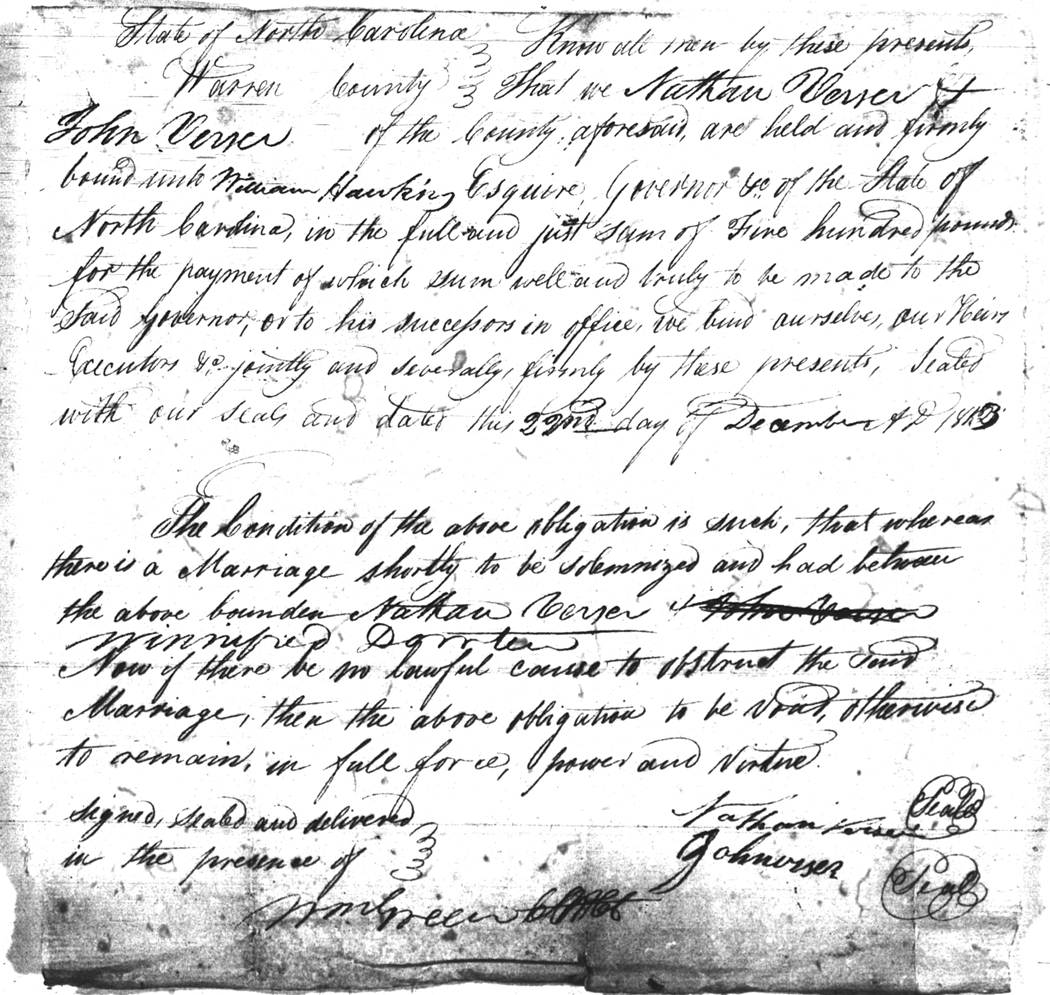 State of North Carolina } Know all men by these presents,
Warren County } That we Nathan Verser &
John Verser of the County, aforesaid, are held and firmly
bound unto William Hawkins Esquire, Governor &c. of the State of
North Carolina, in the full and just sum of Five hundred pounds
for the payment of which sum well and truly to be made to the
Said Governor, or to his successors in office, we bind ourselves, our Heirs
Executors &c. jointly and severally, firmly by these presents, Sealed
with our seals and dated this 22nd day of December A D 1813
The Condition of the above obligation is such, that whereas
there is a Marriage shortly to be solemnized and had between
the above bounden Nathan Verser & John Verser
Winnefred
Now if there be no lawful cause to obstruct the said
Marriage, then the above obligation to be void, otherwise
to remain, in full force, power and virtue.
signed, sealed and delivered
in the presence of
Nathan Verser Seal
John Verser Seal
Wm Green